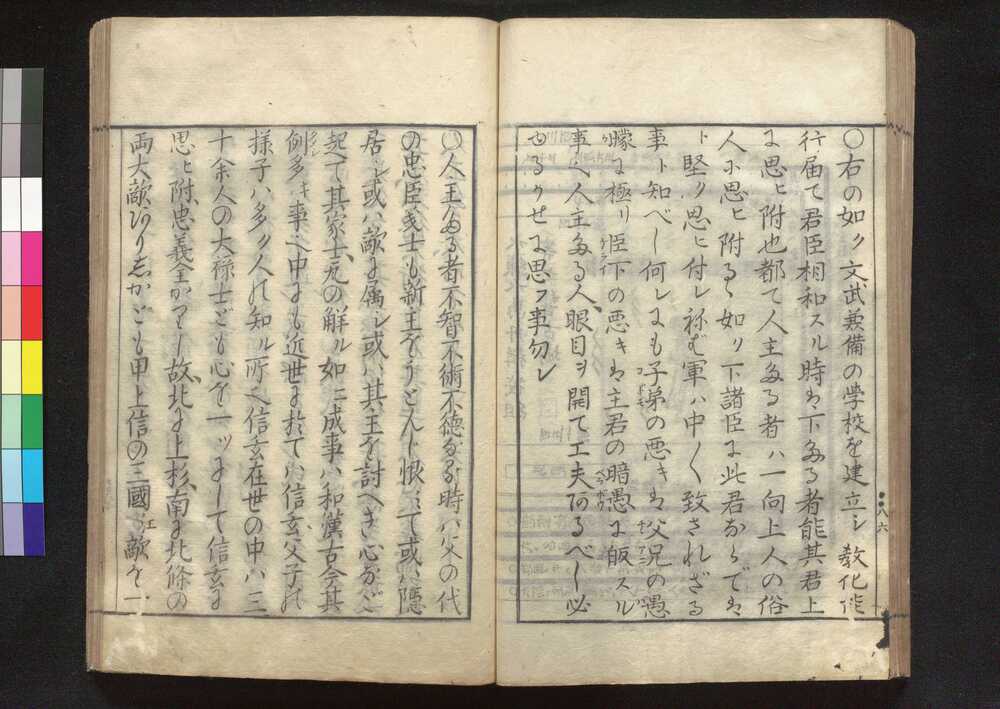 〇右の如ク文武兼備の學校を建立シ教化能
行届て君臣相和スル時ハ下たる者能其君上
に思ヒ附也都て人主たる者ハ一向上人の俗
人に思ヒ附るゝ如ク下諸臣に此君ならでハ
ト堅ク思ヒ付レ祢バ軍ハ中〱致されざる
事ト知べし何レにも子弟の悪キハ父兄の愚
矇に極リ臣下の悪キハ主君の暗愚に皈スル
事也人主たる人眼目ヲ開て工夫阿るべし必
ゆるかせに思フ事勿レ
八六
〇人主たる者不智不術不徳なる時ハ父の代
の忠臣義士も新主をうとんト恨ミて或ハ隠
居シ或ハ敵に属シ或ハ其主を討へき心など
起て其家士瓦の解ル如ニ成事ハ和漢古今其
例多キ事也中にも近世に於てハ信玄父子の
様子ハ多ク人の知ル所也信玄在世の中ハ三
十余人の大禄士ども心を一ツにして信玄に
思ヒ附忠義全かりし故北に上杉南に北條の
両大敵ありしかども甲上信の三國江敵を一